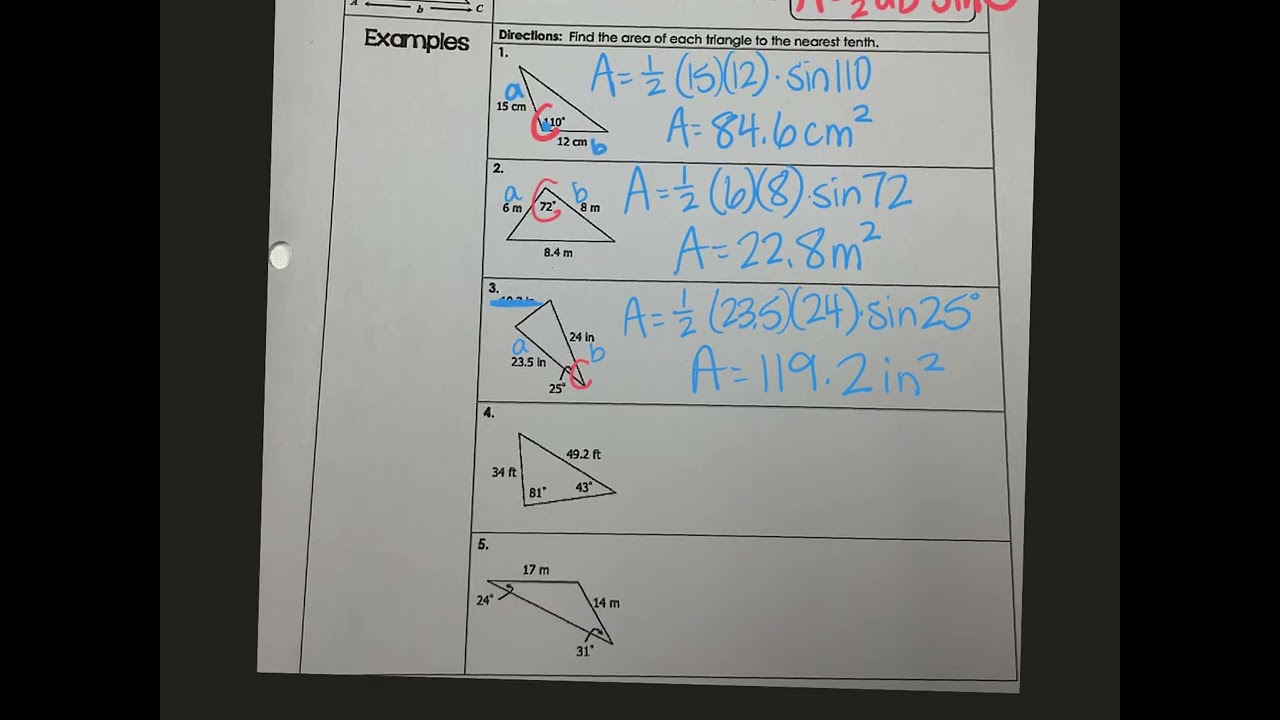 A b C
A = 1/2 ab sin C
Examples
Directions: Find the area of each triangle to the nearest tenth.
1.
a
15 cm
110°
12 cm b
A = 1/2 (15)(12) · sin 110
A = 84.6 cm²
2.
a C b
6 m 72° 8 m
8.4 m
A = 1/2 (6)(8) · sin 72
A = 22.8 m²
3.
24 in
a b
23.5 in C
25°
A = 1/2 (23.5)(24) · sin 25°
A = 119.2 in²
4.
49.2 ft
34 ft
81° 43°
5.
17 m
24° 14 m
31°